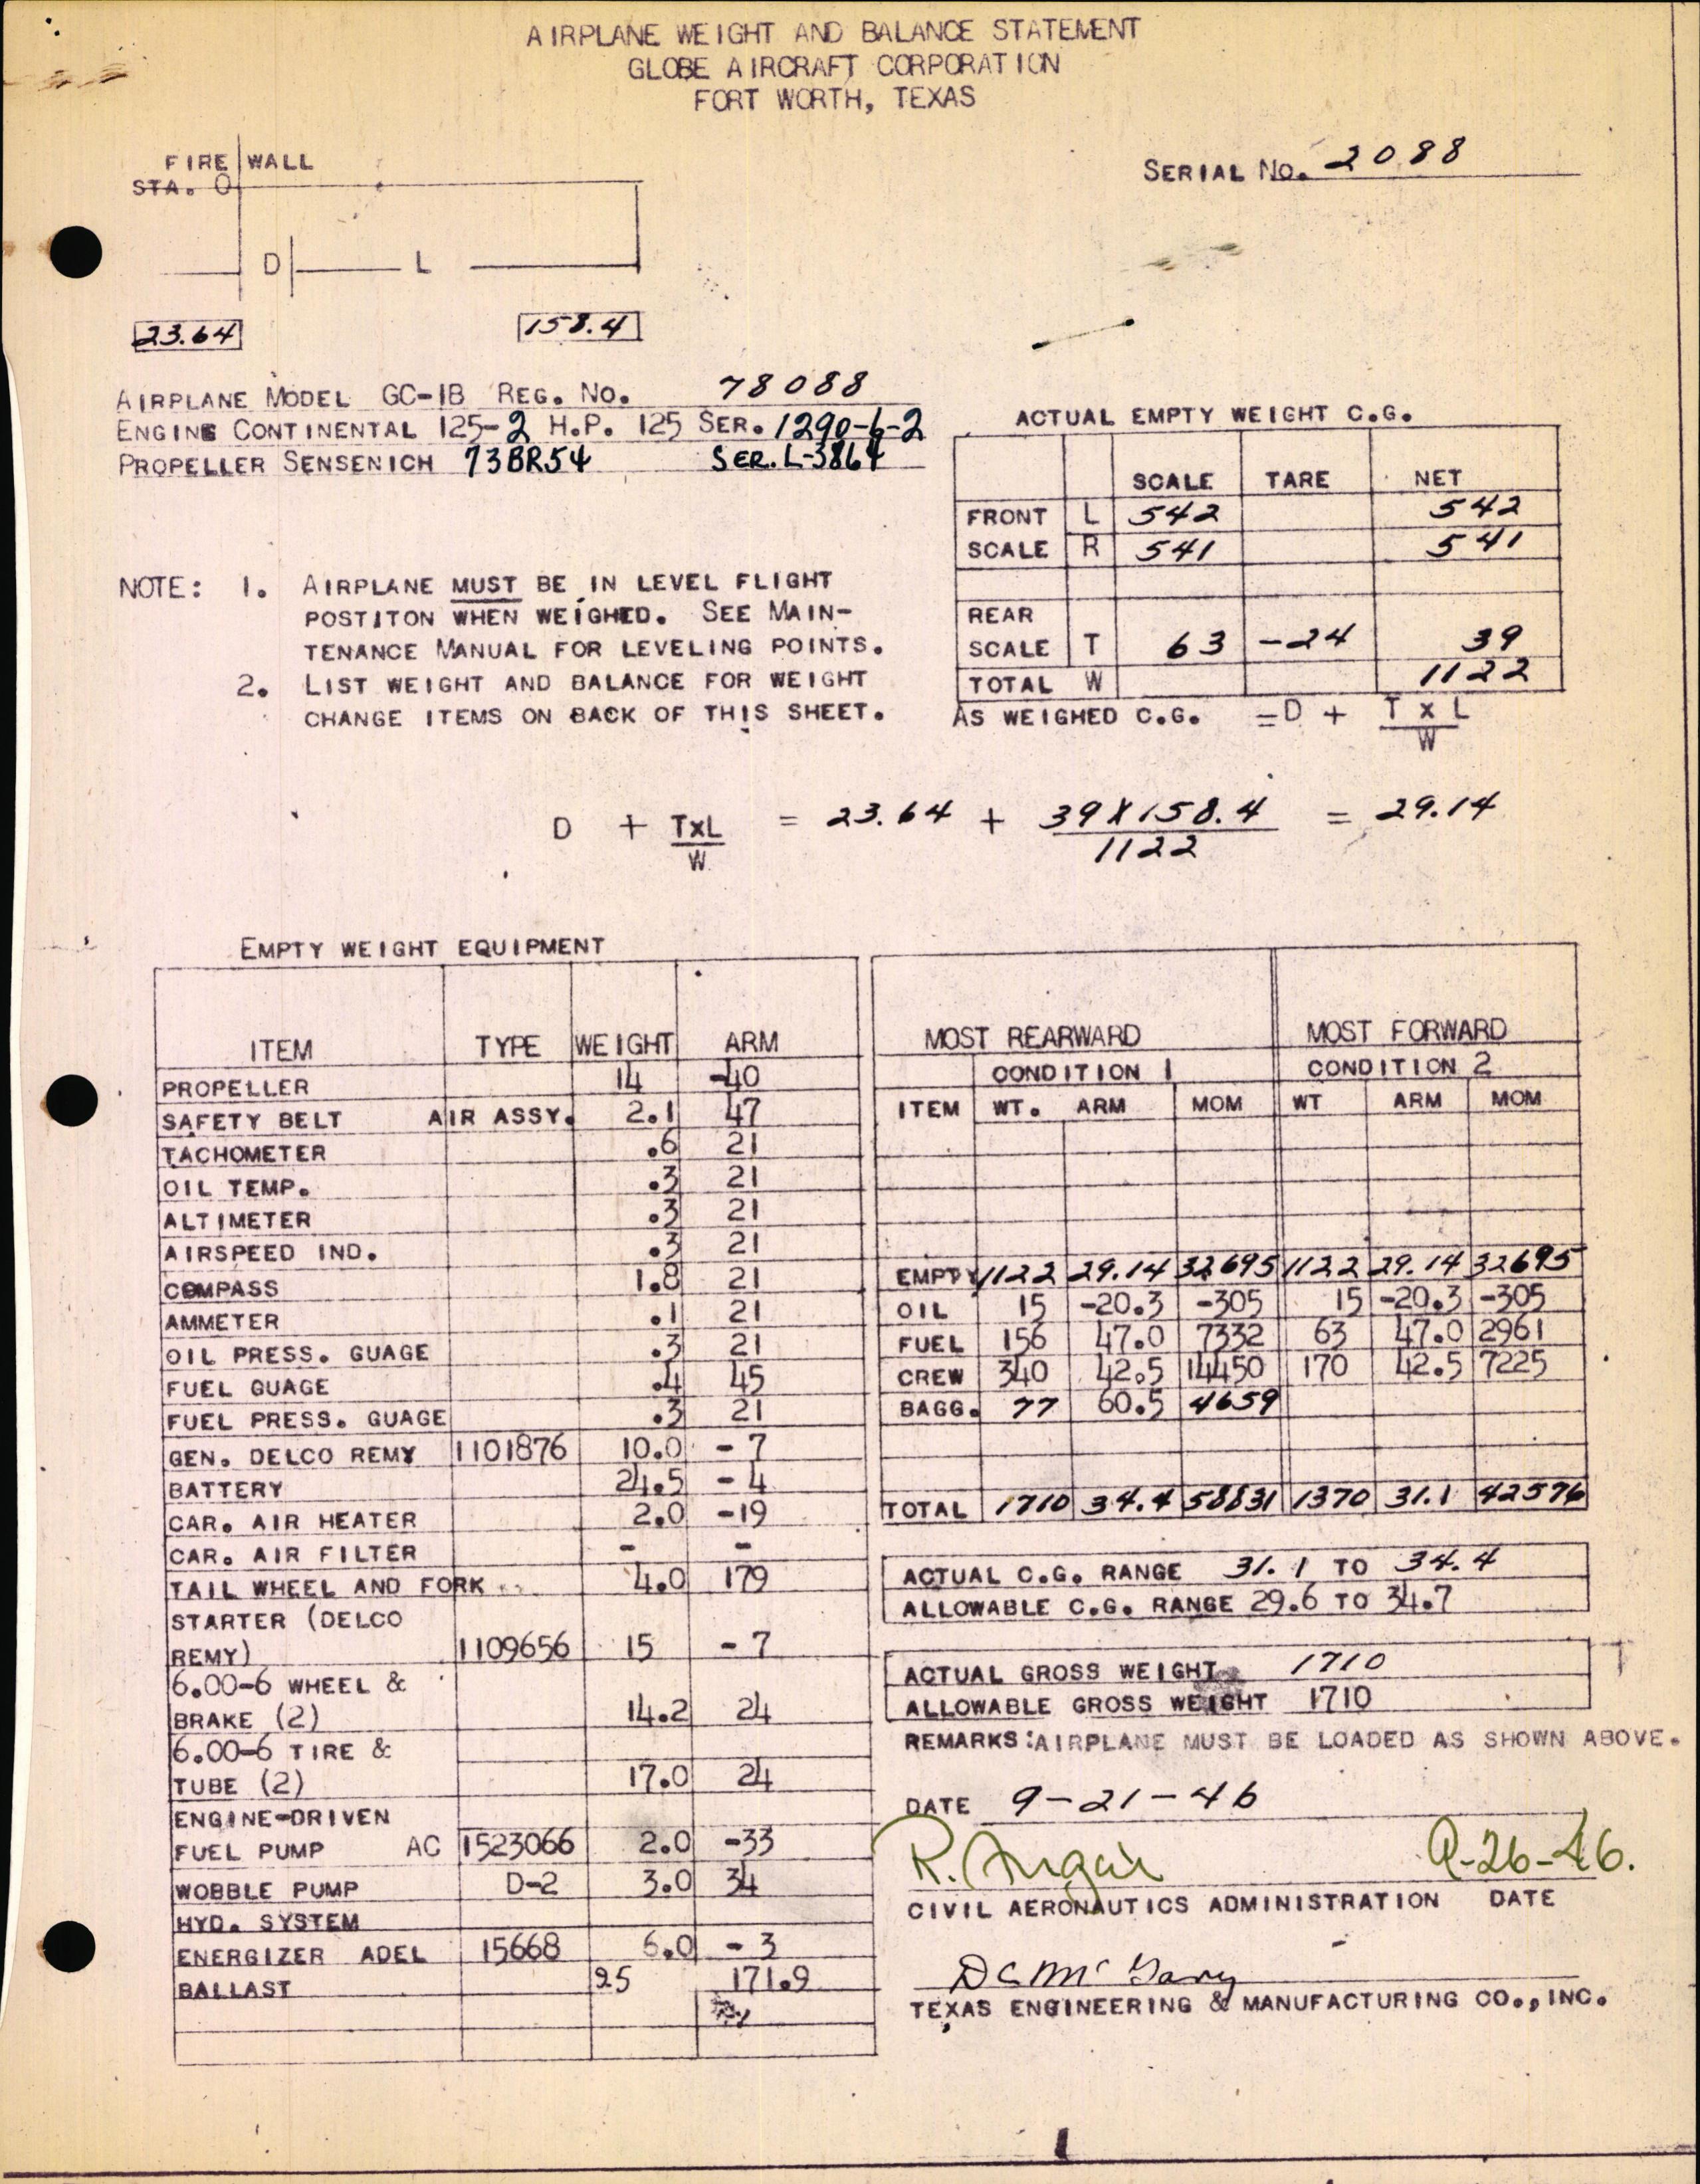 AIRPLANE WEIGHT AND BALANCE STATEMENT
GLOBE AIRCRAFT CORPORATION
FORT WORTH, TEXAS
FIRE WALL
STA. 0
SERIAL No. 2088
D L
23.64 158.4
AIRPLANE MODEL GC-1B REG. No. 78088
ENGINE CONTINENTAL 125-2 H.P. 125 SER. 1290-6-2
PROPELLER SENSENICH 73BR54 SER. L-3864
ACTUAL EMPTY WEIGHT C.G.
SCALE TARE NET
FRONT L 542 542
SCALE R 541 541
REAR
SCALE T 63 -24 39
TOTAL W 1122
AS WEIGHED C.G. =D + T x L
W
NOTE: 1. AIRPLANE MUST BE IN LEVEL FLIGHT
POSTITON WHEN WEIGHED. SEE MAIN-
TENANCE MANUAL FOR LEVELING POINTS.
2. LIST WEIGHT AND BALANCE FOR WEIGHT
CHANGE ITEMS ON BACK OF THIS SHEET.
D + TxL = 23.64 + 39X158.4 = 29.14
W 1122
EMPTY WEIGHT EQUIPMENT
ITEM TYPE WEIGHT ARM
PROPELLER 14 -40
SAFETY BELT AIR ASSY. 2.1 47
TACHOMETER .6 21
OIL TEMP. .3 21
ALTIMETER .3 21
AIRSPEED IND. .3 21
COMPASS 1.8 21
AMMETER .1 21
OIL PRESS. GUAGE .3 21
FUEL GUAGE .4 45
FUEL PRESS. GUAGE .3 21
GEN. DELCO REMY 1101876 10.0 - 7
BATTERY 24.5 - 4
CAR. AIR HEATER 2.0 -19
CAR. AIR FILTER - -
TAIL WHEEL AND FORK 4.0 179
STARTER (DELCO
REMY) 1109656 15 - 7
6.00-6 WHEEL &
BRAKE (2) 14.2 24
6.00-6 TIRE &
TUBE (2) 17.0 24
ENGINE-DRIVEN
FUEL PUMP AC 1523066 2.0 -33
WOBBLE PUMP D-2 3.0 34
HYD. SYSTEM
ENERGIZER ADEL 15668 6.0 - 3
BALLAST 25 171.9
MOST REARWARD MOST FORWARD
CONDITION 1 CONDITION 2
ITEM WT. ARM MOM WT ARM MOM
EMPTY 1122 29.14 32695 1122 29.14 32695
OIL 15 -20.3 -305 15 -20.3 -305
FUEL 156 47.0 7332 63 47.0 2961
CREW 340 42.5 14450 170 42.5 7225
BAGG. 77 60.5 4659
TOTAL 1710 34.4 58831 1370 31.1 42576
ACTUAL C.G. RANGE 31.1 TO 34.4
ALLOWABLE C.G. RANGE 29.6 TO 34.7
ACTUAL GROSS WEIGHT 1710
ALLOWABLE GROSS WEIGHT 1710
REMARKS: AIRPLANE MUST BE LOADED AS SHOWN ABOVE.
DATE 9-21-46
R. 9-26-46.
CIVIL AERONAUTICS ADMINISTRATION DATE
TEXAS ENGINEERING & MANUFACTURING CO., INC.
1